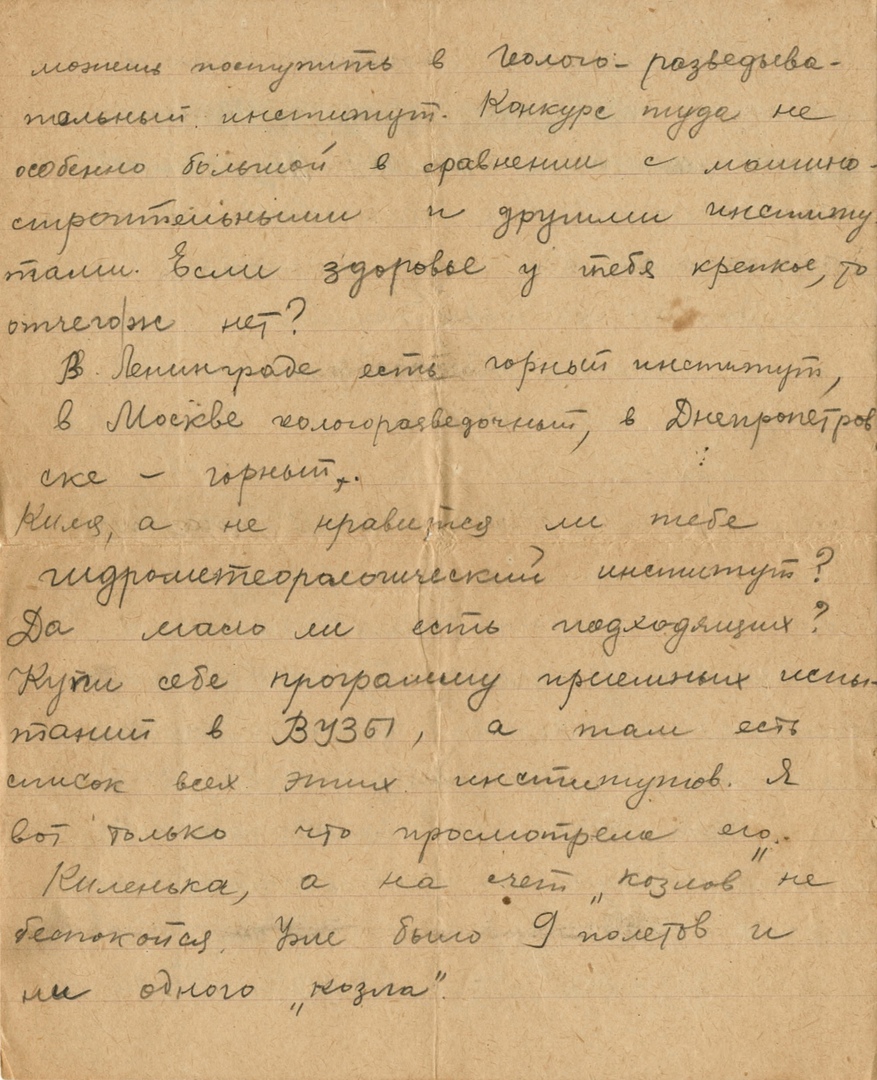 можешь поступить в геолого-разведыва-
тельный институт. Конкурс туда не
особенно большой в сравнении с машино-
строительными и другими институ
тами. Если здоровье у тебя крепкое, то
отчего|ж нет?
В Ленинграде есть горный институт,
в Москве геологоразведочный, в Днепропетров
ске – горный.
Киля, а не нравится ли тебе
гидрометеорологический институт?
Да мало ли есть подходящих?
Купи себе программу приемных испы-
таний в ВУЗЫ, а там есть
список всех этих институтов. Я
вот только что просмотрела его.
Киленька, а на счет „козлов" не
беспокойся. Уже было 9 полетов и
ни одного „козла".